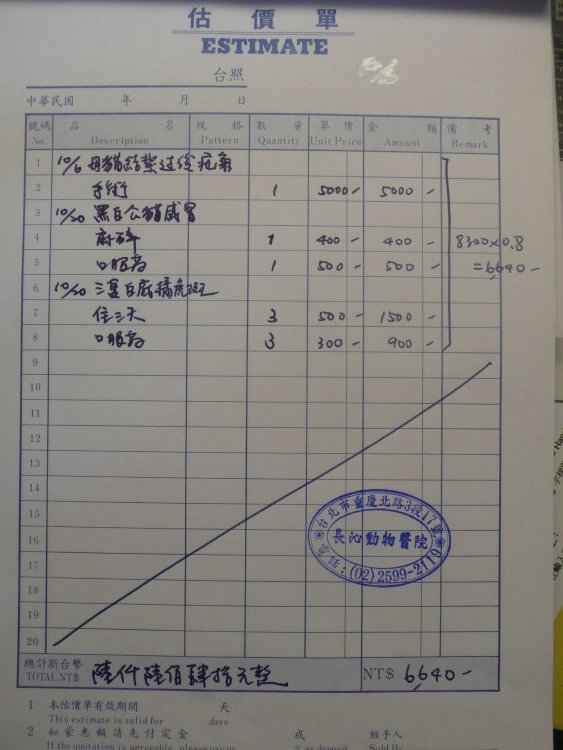 估價單
ESTIMATE
台照
中華民國 年 月 日
號碼 品名 規格 數量 單價 金額 備考
No. Description Pattern Quantity Unit Price Amount Remark
1 10/6 母貓結紮过後疝氣
2 手術 1 5000- 5000-
3 10/20 黑白公貓感冒
4 1 400- 400- 8300×0.8
5 口服葯 1 500- 500- =6640-
6 10/20 三隻白底橘虎斑
7 住三天 3 500- 1500-
8 口服葯 3 300- 900-
9
10
11
12
13
14
15
16
17
18
19
20
台北市重慶北路3段17號
長沁動物醫院
電話:(02)2599-2119
總計新台幣
TOTAL NT$ 陸仟陸佰肆拾元整 NT$ 6640-
1 本估價單有效期間 天
This estimate is valid for days
2 如蒙惠顧請先付定金 成 經手人
If the quotation is agreeable, please pay us % as deposit Sold By